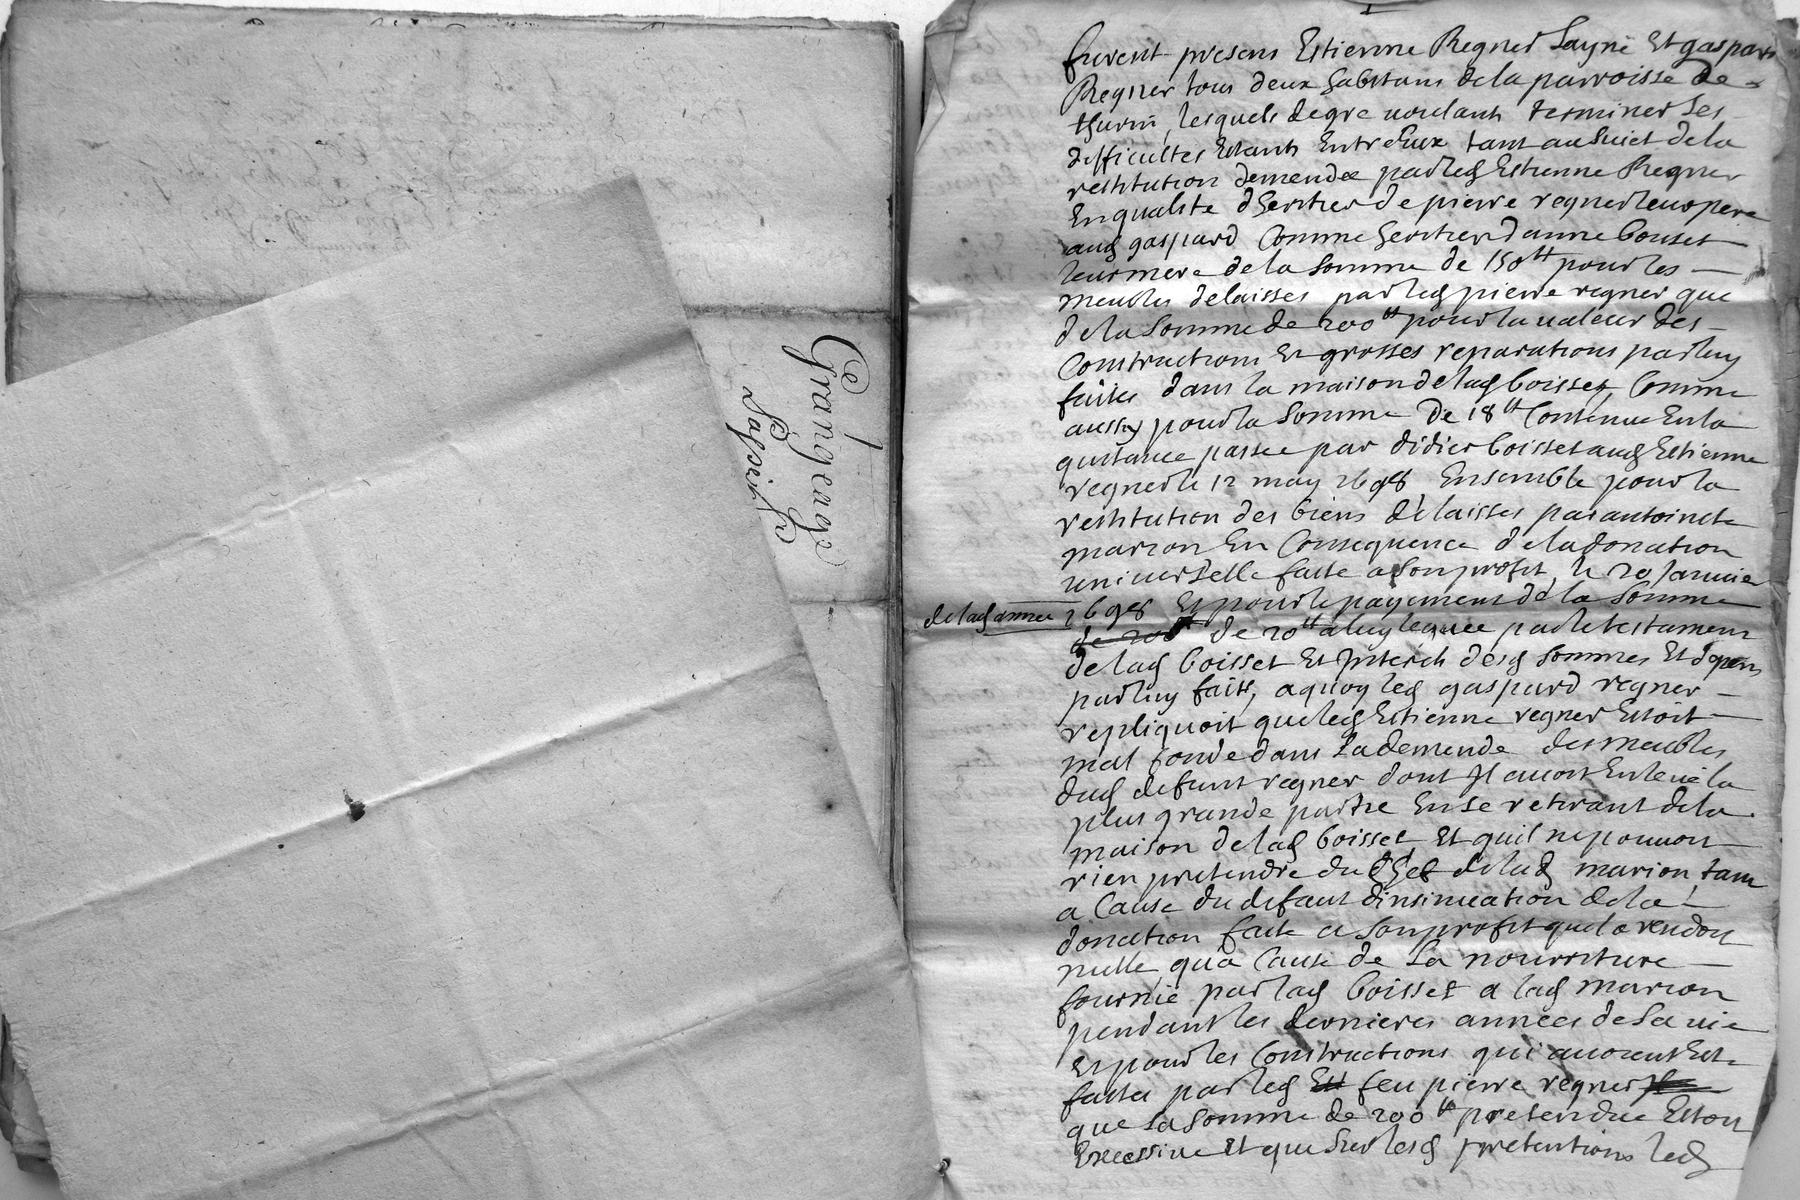 Grangeage
furent presens Estienne Regner layne Et gaspard
Regner tous deux habitans dela parroisse de
thurin, lesquels degre voulants terminer les
difficultes Estants Entreux tant au suiet dela
restitution demendee par led Estienne Regner
En qualite dheritier de pierre regner leur pere
aud gaspard Comme heritier danne boisset
leur mere de la somme de 150tt pour les
meubles delaisses par led pierre regner que
de la somme de 200tt pour la valeur des
Constructions Et grosses reparations par luy
faites dans la maison de lad boisset, Comme
aussy pour la somme De 18tt Contenue En la
quitance passee par didier boisset aud Estienne
regner le 12 may 1698 Ensemble pour la
restitution des biens delaisses par antoinete
marion En Consequence de la donation
universelle faite a son profit, le 20 Janvier
de lad année 1698 Et pour le payement de la somme
de 200tt de 20tt a luy leguee par le testament
de lad boisset Et Interets desd sommes Et depens
par luy faits, a quoy led gaspard regner
repliquoit que led Estienne regner Estoit
mal fonde dans la demende des meubles
dud defunt regner dont Il avoit Enlevé la
plus grande partie En se retirant dela
maison de lad boisset Et quil ne pouvoit
rien pretendre du chef de lad marion, tant
a Cause du defaut dinsinuation de la
donation faite a son profit qui la rendoit
nulle, qua Cause de la nourriture
fournie par lad boisset a lad marion
pendant les dernieres années de sa vie
Et pour les Constructions qui avoient Esté
faites par led Est feu pierre regner
que la somme de 200tt pretendue Estoit
Excessive Et que sur lesd pretentions led